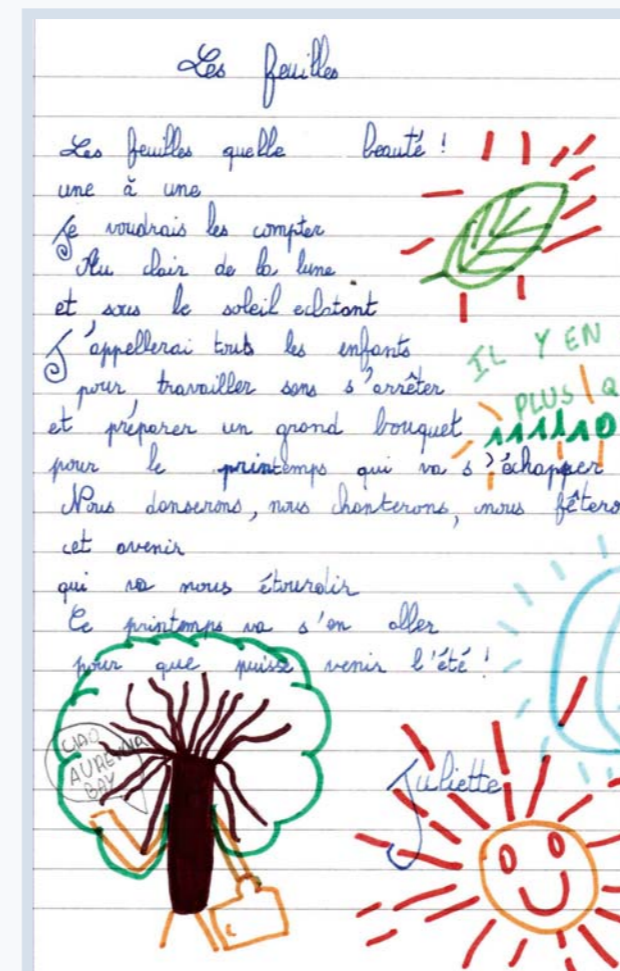 Les feuilles
Les feuilles quelle beauté !
une à une
Je voudrais les compter
Au clair de la lune
et sous le soleil eclatant
J'appellerai touts les enfants
pour travailler sans s'arrêter
et préparer un grand bouquet
pour le printemps qui va s'échapper
Nous danserons, nous chanterons, nous fêtero
cet avenir
qui va nous étourdir
Ce printemps va s'en aller
pour que puisse venir l'été !
IL Y EN
PLUS Q
CIAO
BAY
Juliette